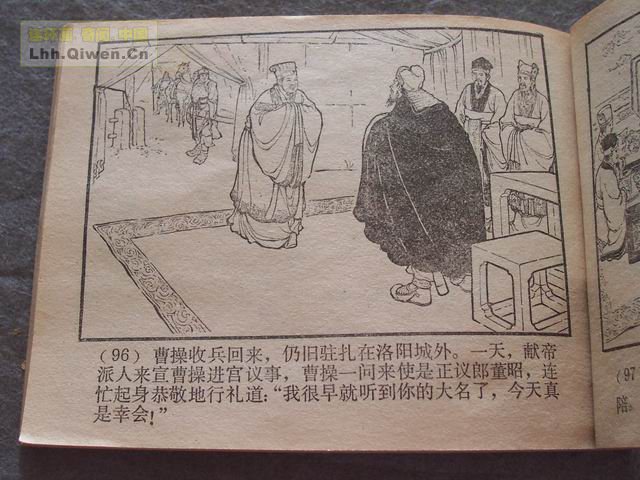 连环画·奇闻·中国
Lhh.Qiwen.Cn
(96) 曹操收兵回来，仍旧驻扎在洛阳城外。一天，献帝
派人来宣曹操进宫议事，曹操一问来使是正议郎董昭，连
忙起身恭敬地行礼道：“我很早就听到你的大名了，今天真
是幸会！”
(97
陪